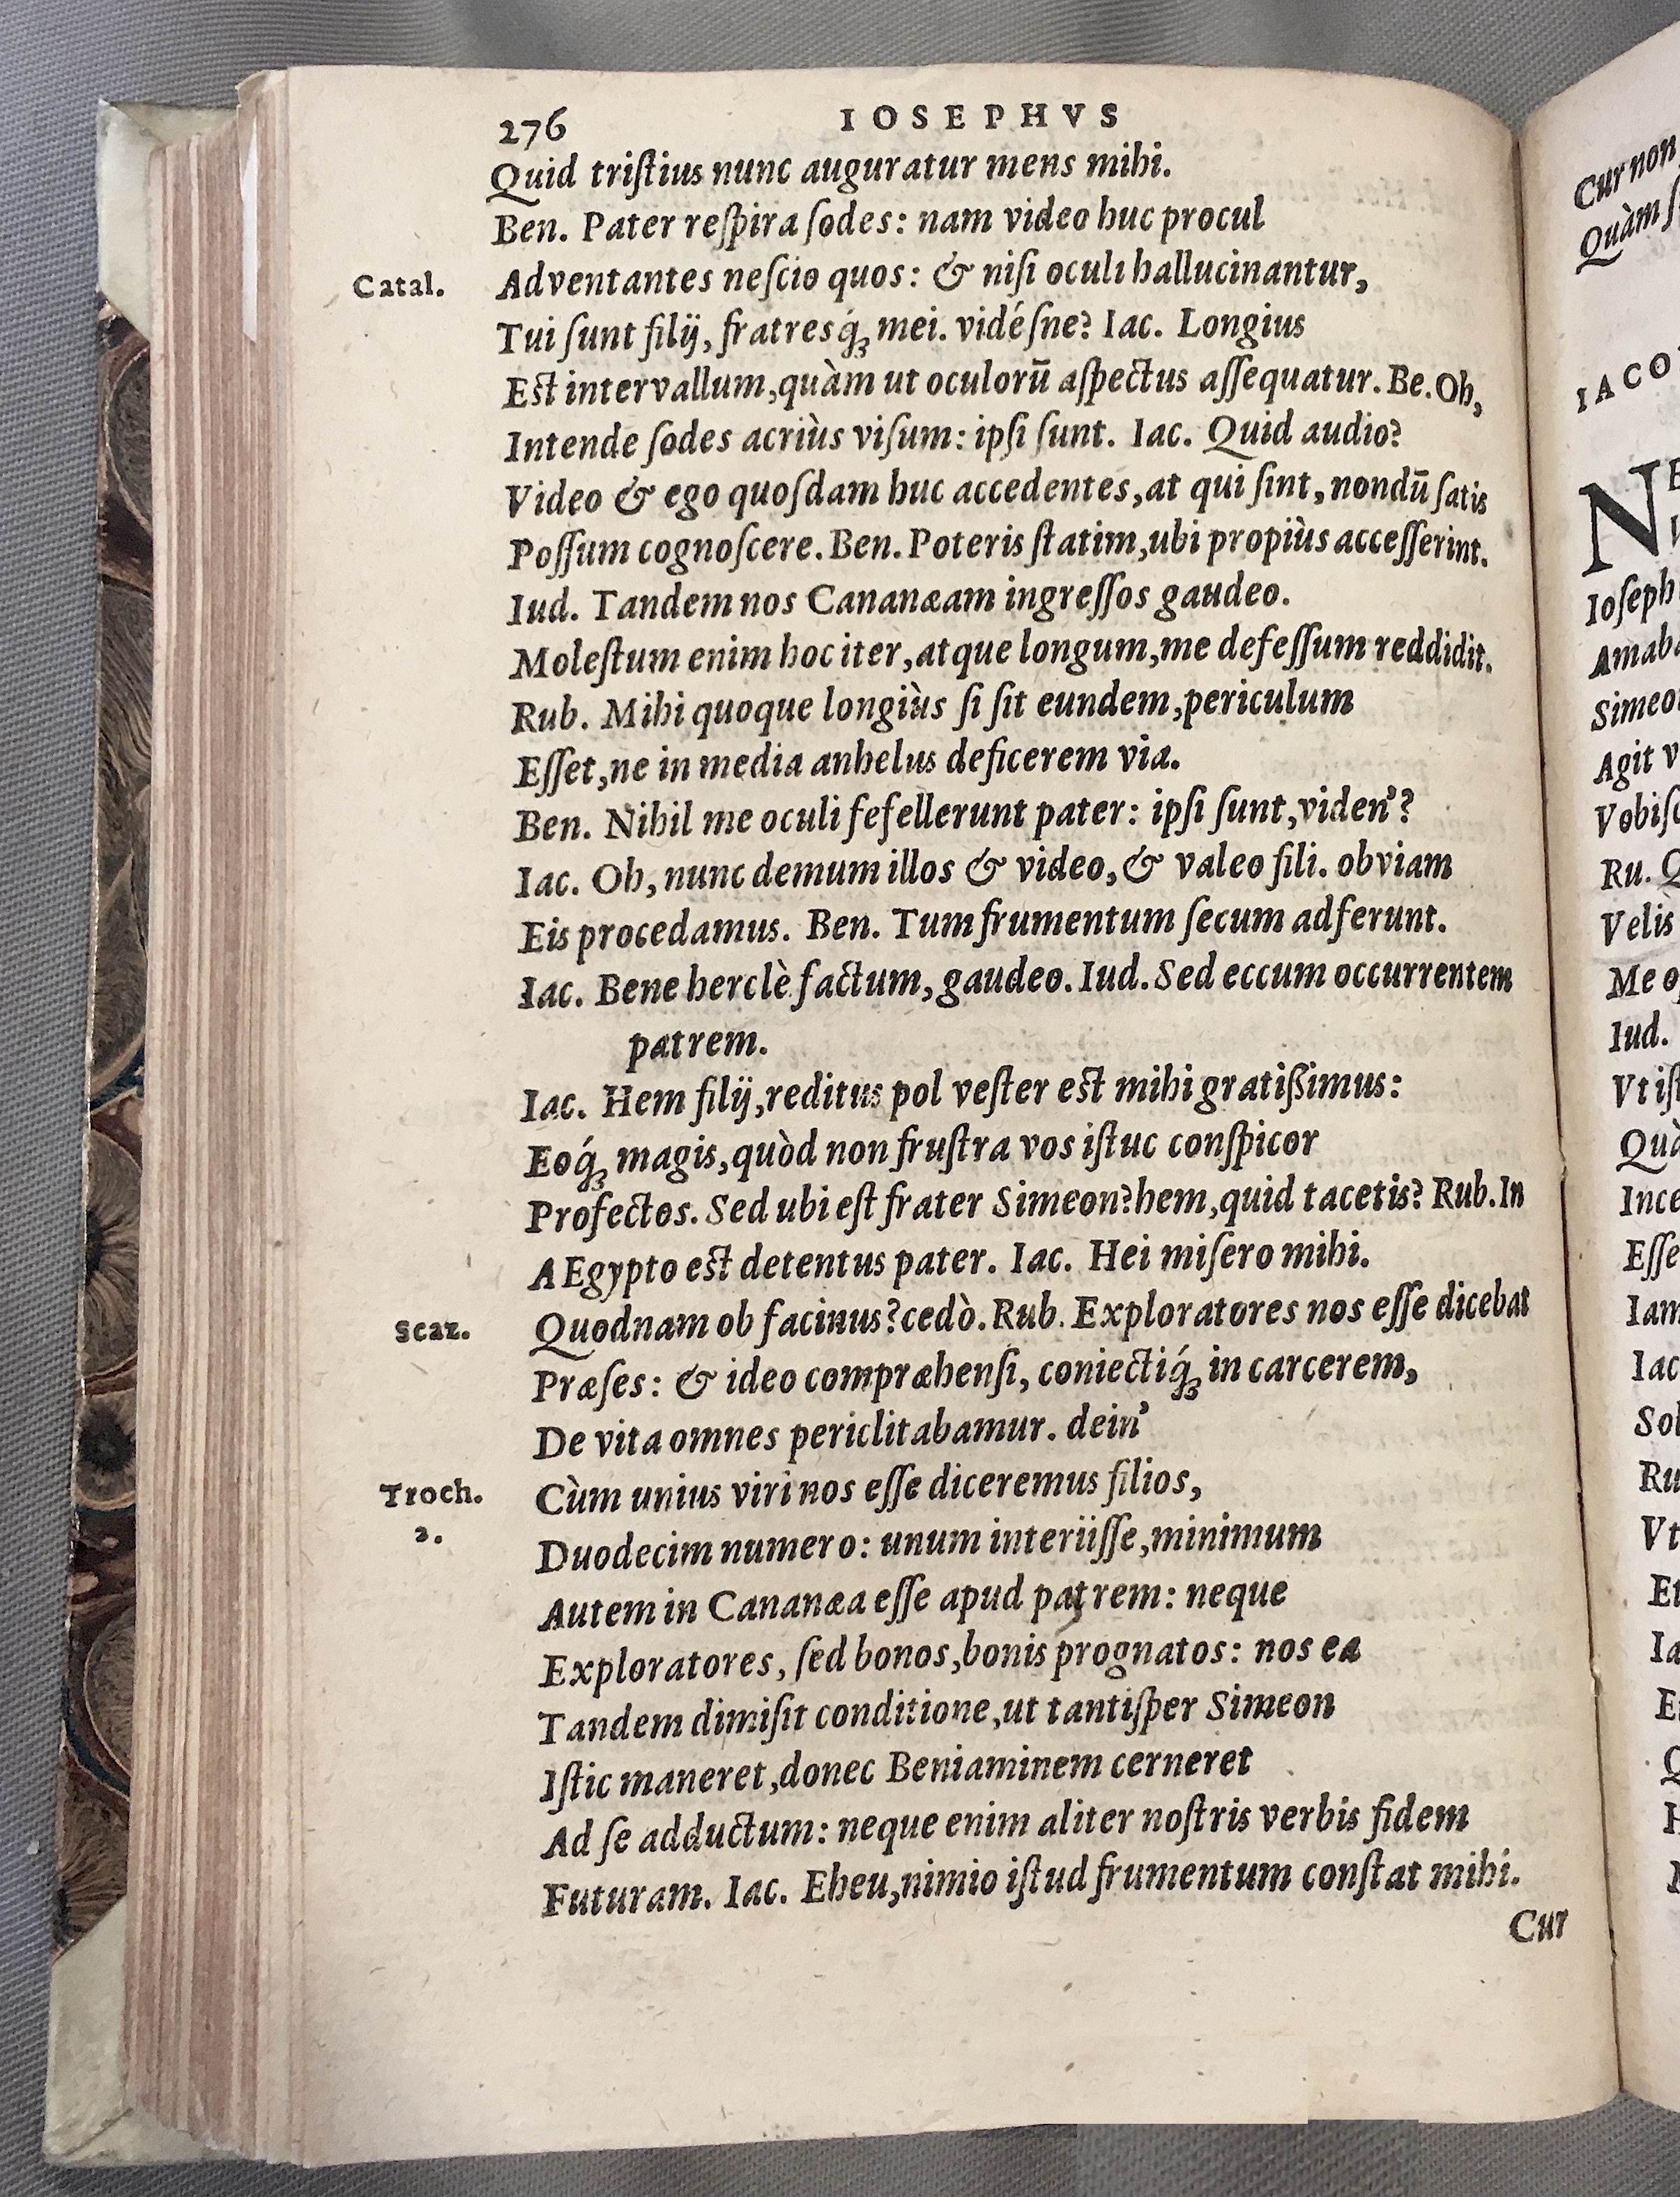 276 IOSEPHVS
Quid triſtius nunc auguratur mens mihi.
Ben. Pater reſpira ſodes: nam video huc procul
Catal. Adventantes neſcio quos: & niſi oculi hallucinantur,
Tui ſunt filij, fratresq́ꝫ mei. vidéſne? Iac. Longius
Eſt intervallum,quàm ut oculorū aſpectus aſſequatur. Be. Oh,
Intende ſodes acriùs viſum: ipſi ſunt. Iac. Quid audio?
Video & ego quoſdam huc accedentes,at qui ſint, nondū ſatis
Poſſum cognoſcere. Ben. Poteris ſtatim,ubi propiùs acceſſerint.
Iud. Tandem nos Cananæam ingreſſos gaudeo.
Moleſtum enim hoc iter,atque longum,me defeſſum reddidit.
Rub. Mihi quoque longiùs ſi ſit eundem,periculum
Eſſet,ne in media anhelus deficerem via.
Ben. Nihil me oculi fefellerunt pater: ipſi ſunt,viden'?
Iac. Oh, nunc demum illos & video,& valeo fili. obviam
Eis procedamus. Ben. Tum frumentum ſecum adferunt.
Iac. Bene herclè factum, gaudeo. Iud. Sed eccum occurrentem
patrem.
Iac. Hem filij,reditus pol veſter eſt mihi gratißimus:
Eoq́ꝫ magis,quòd non fruſtra vos iſtuc conſpicor
Profectos. Sed ubi eſt frater Simeon?hem,quid tacetis? Rub. In
AEgypto eſt detentus pater. Iac. Hei miſero mihi.
Scaz. Quodnam ob facinus?cedò. Rub. Exploratores nos eſſe dicebat
Præſes: & ideo compræhenſi, coniectiq́ꝫ in carcerem,
De vita omnes periclitabamur. dein'
Troch. 2. Cùm unius viri nos eſſe diceremus filios,
Duodecim numero: unum interiiſſe,minimum
Autem in Cananæa eſſe apud patrem: neque
Exploratores, ſed bonos,bonis prognatos: nos ea
Tandem dimiſit conditione,ut tantiſper Simeon
Iſtic maneret,donec Beniaminem cerneret
Ad ſe adductum: neque enim aliter noſtris verbis fidem
Futuram. Iac. Eheu,nimio iſtud frumentum conſtat mihi.
Cur
Cur non
Quàm
IACO
Ioſeph
Simeo
Agit
Ru.
Velis
Me
Iud.